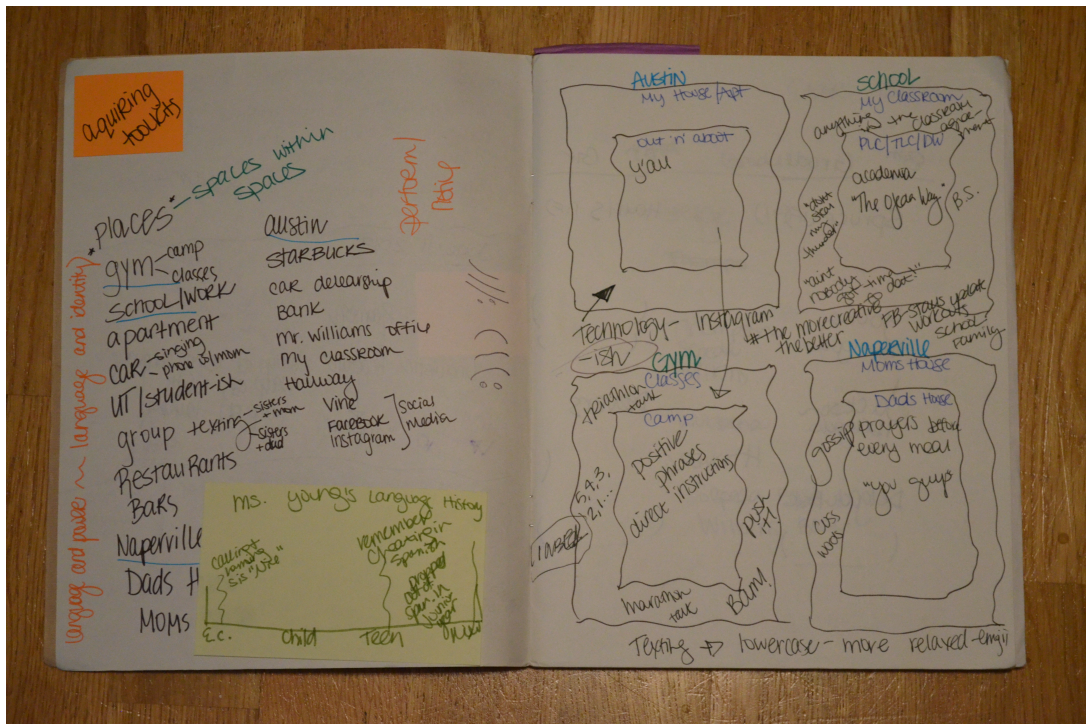 aquiring
toolkits
*Places*-spaces within
spaces
perform/
notify
language and power ~ language and identity
gym - camp
classes
SCHOOL/WORK
apartment
car - singing
phone w/mom
UT/student-ish
group texting - sisters + mom
sisters + dad
Restaurants
Bars
Naperville
Dads H
Moms
austin
STARBUCKS
car delearship
Bank
mr. williams office
my classroom
Hallway
Vine
FACEBOOK
Instagram
Social
Media
ms. young's Language History
calling
sis "Nike"
remember
cheating in
spanish
dropped
out of
Span. in
junior
year
E.C.
Child
Teen
AUSTIN
My House/Apt
out 'n' about
y'all
SCHOOL
My Classroom
anything in the classroom
PLC/TLC/DW
academia
"The Ojean Way"
B.S.
"don't
steal
my
thunder"
"aint
nobody
got time
to doe!"
Technology - Instagram
#the more creative
the better
FB-stays update
workouts
school
Family
-ish
GYM
Classes
triathlon
talk
Camp
positive
phrases
direct instructions
5, 4, 3,
2, 1...
push
it!
marathon
talk
BAM!
Naperville
Moms House
Dads House
prayers before
every meal
"you guys"
gossip
cuss
words
Texting → lowercase - more relaxed - emoji